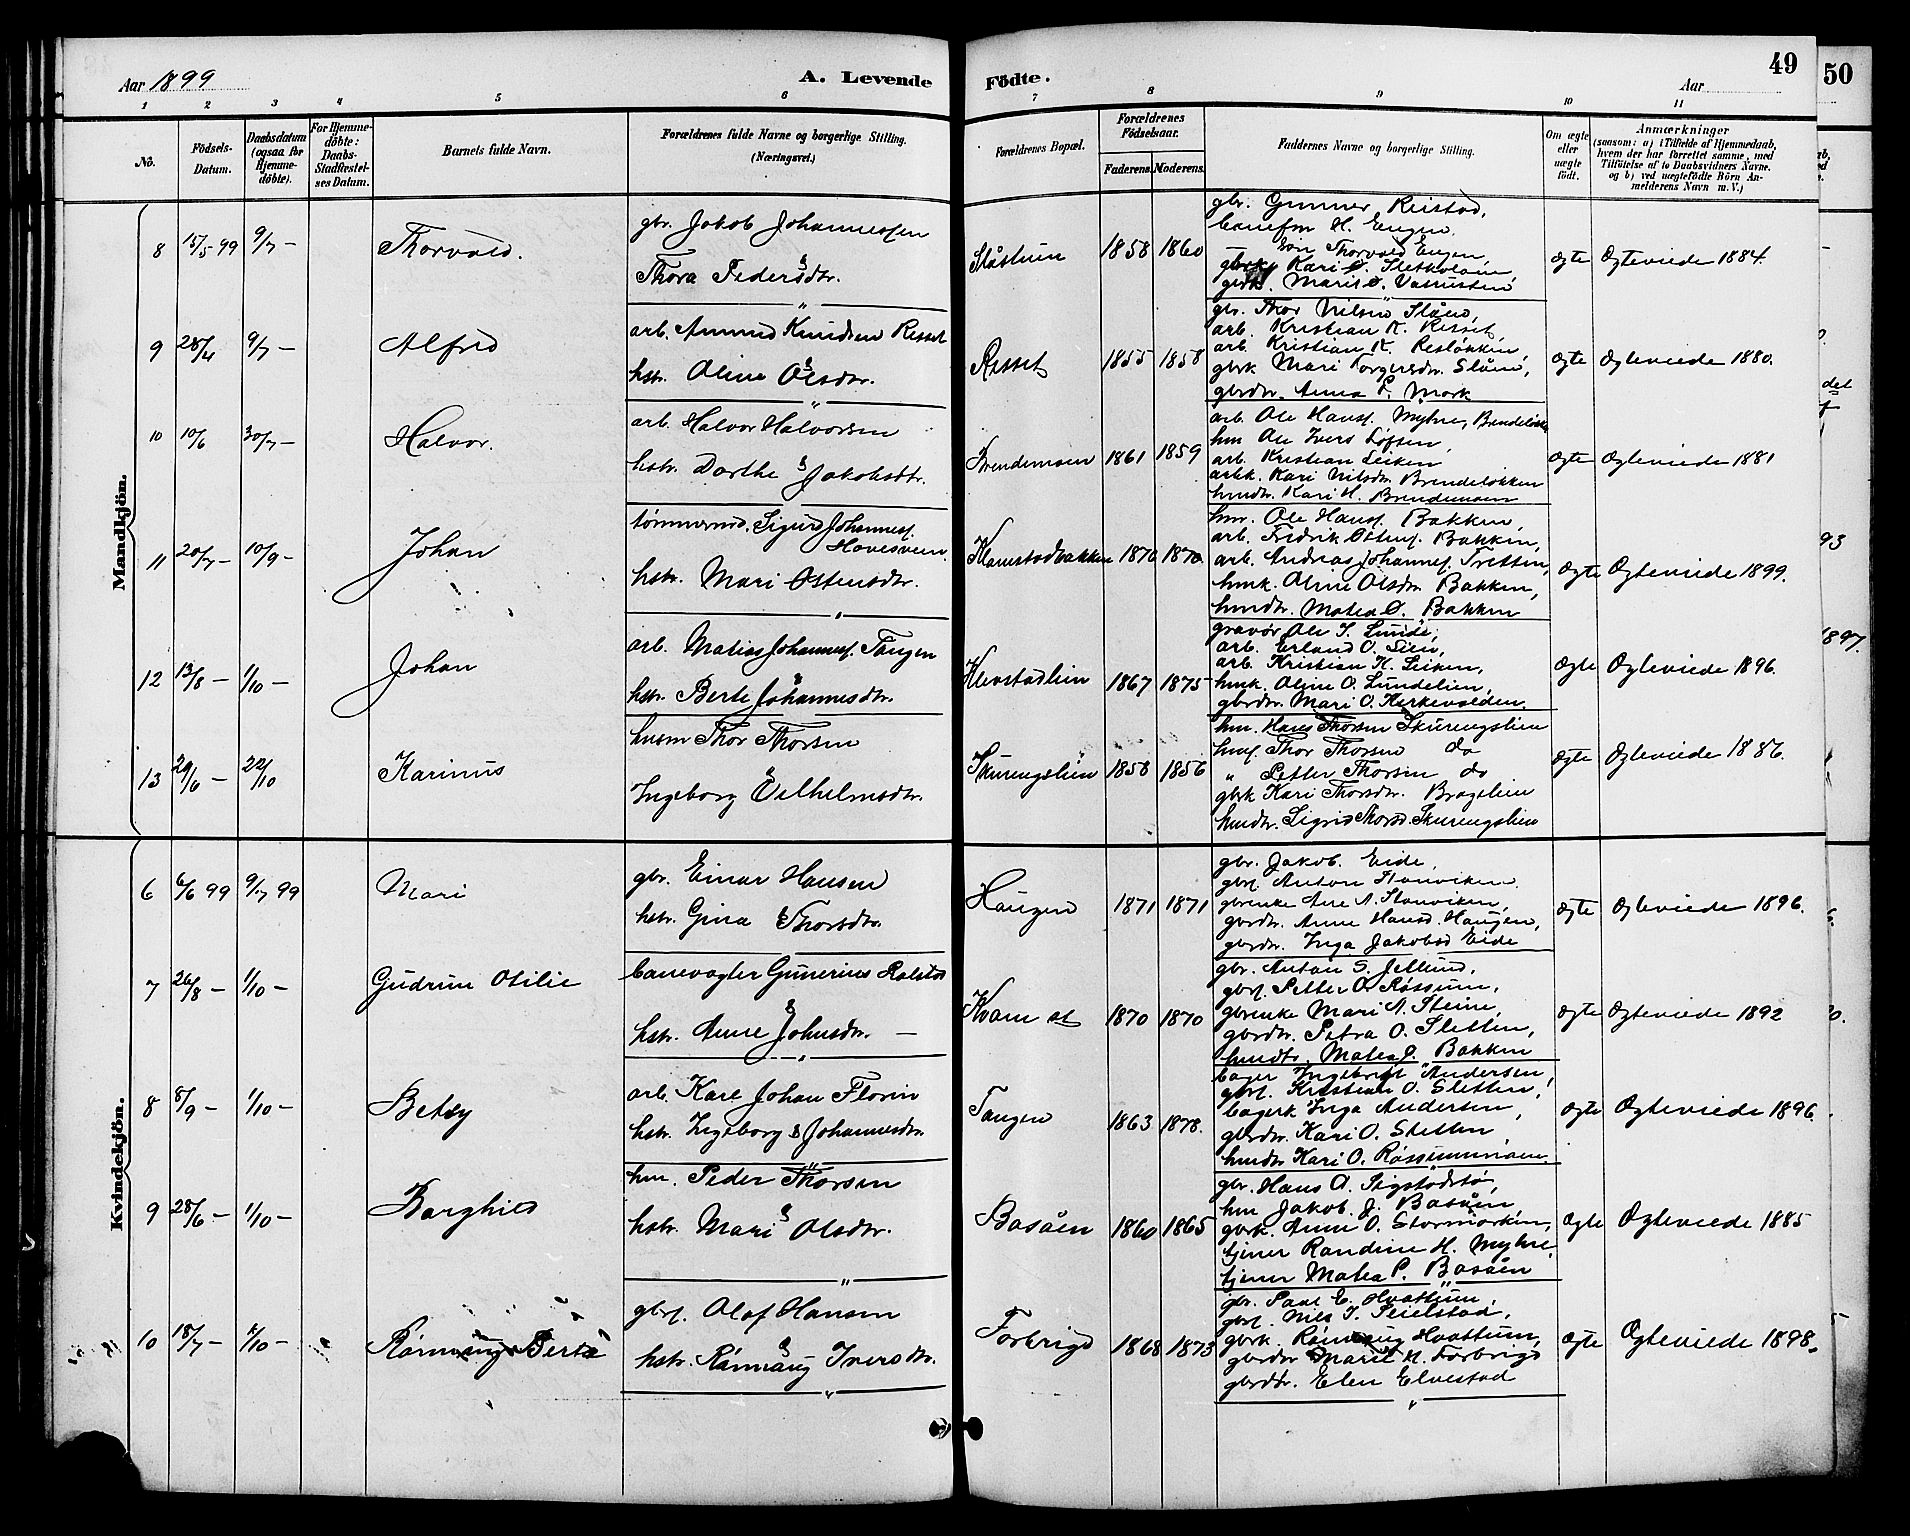 Aar 1899
A. Levende
Födte.
Aar
49
50
1 2 3 4 5 6 7 8 9 10 11
No.
Födsels-
Datum.
Daabsdatum
(ogsaa for
Hjemme-
döbte).
For Hjemme-
döbte:
Daabs-
Stadfæstel-
ses Datum.
Barnets fulde Navn.
Forældrenes fulde Navne og borgerlige Stilling.
(Næringsvei.)
Forældrenes Bopæl.
Forældrenes
Födselsaar.
Faderens. Moderens.
Faddernes Navne og borgerlige Stilling.
Om ægte
eller
uægte
födt.
Anmærkninger
(saasom: a) i Tilfælde af Hjemmedaab,
hvem der har forrettet samme, med
Tilföielse af to Daabsvidners Navne.
og b) ved uægtefödte Börn An-
melderens Navn m. V.)
Mandkjön.
8 15/5 99 9/7 - Thorvald.
gbr. Jakob Johannessen
Thora Pedersdtr.
Slåstuen 1858 1860
gbr. Gunner Reistad,
banefm H. Engen,
Søn Thorvald Engen,
gbrk. Kari Ø. Sletholaien,
gbrk. Marit O. Vatustuen
ægte Ægteviede 1884.
9 28/4 9/7 - Alfred
arb. Amund Knudsen Risset
hstr. Oline Olsdtr.
Risset 1855 1858
gbr. Thor Nilsen Slåen,
arb. Kristian K. Risset,
arb. Kristian K. Resløkken,
gbrk Mari Torgersdr. Slåen,
gbrdtr. Anna P. Mork
ægte Ægteviede 1880.
10 10/6 30/7 - Halvor.
arb. Halvor Halvorsen
hstr. Dorthe Jakobsdtr.
Brendemoen 1861 1859
arb. Ole Hansf. Myhre, Brendeløkk
hm Ole Ivers Loftsen,
arb. Kristian Leiken,
arbk. Kari Nilsdr. Brendeløkken
hmdtr. Kari H. Brendemoen
ægte Ægteviede 1881
11 20/7 - 10/9 - Johan
tømmermd. Sigurd Johannesf.
Hovesveen
hstr. Mari Ostensdtr.
Klomstadbakken 1870 1870.
hm. Ole Hansf. Bakken,
arb. Fredrik Ostensf. Bakken,
arb. Andreas Johannesf. Tretten,
hmk. Oline Olsdr Bakken,
hmdtr. Matea O. Bakken
ægte Ægteviede 1899.
12 13/8 - 1/10 - Johan
arb. Matias Johannesf. Tangen
hstr. Berte Johannesdtr.
Klevstadlien 1867 1875
gravør Ole I. Lunde,
arb. Erland O. Lien,
arb. Kristian H. Leiken,
hmk. Oline O. Lundelien,
gbrdtr. Mari O. Kirkevolden.
ægte Ægteviede 1896.
13 29/6 - 22/10 Karinus
husm Thor Thorsen
Ingeborg Vilhelmsdtr.
Skurengslien 1858 1856
hm. Hans Thorsen Skurengslien
hmf. Thor Thorsen do
" Petter Thorsen do
gbrk Kari Thorsdtr. Bragelien
hmdtr. Sigrid Thorsd. Skurengslien
ægte Ægteviede 1886.
Kvindekjön.
6 6/6 99 9/7 99 Mari
gbr. Einar Hansen
hstr. Gina Thorsdtr.
Haugen 1871 1871
gbr. Jakob. Eide,
gbrf. Anton Stanviken,
gbrenke Ane A. Stanviken,
gbrdtr. Anne Hansd. Haugen,
gbrdtr. Inga Jakobsd Eide
ægte Ægteviede 1896.
7 26/8 - 1/10 - Gudrun Otilie
banevogter Gunerius Rolstad
hstr. Anne Johnsdtr. -
Kvam st 1870 1870
gbr. Anton S. Jetlund,
gbrf. Petter O. Røssum,
gbrenke Mari A. Steine,
gbrdtr. Petra O. Sletten,
hmdtr. Matea O. Bakken
ægte Ægteviede 1892
8 8/9 - 1/10 - Betsy
arb. Karl Johan Florin
hstr. Ingeborg Johannesdtr.
Tangen 1863 1878.
bager Ingebrigt Andersen,
gbrf. Kristian O. Sletten,
bagerk Inga Andersen,
gbrdtr. Kari O. Sletten,
hmdtr Kari O. Røssummoen.
ægte Ægteviede 1896.
9 28/6 - 1/10 - Borghild
hm. Peder Thorsen
hstr. Mari Olsdtr.
Basåen 1860 1865
gbr. Hans O. Sigstadstø,
hm Jakob. J. Basåen
gbrk. Anne O. Stormorken,
tjener Randine H. Myhre,
tjener Matea P. Basåen
ægte Ægteviede 1885
10 18/7 - 1/10 - Rønnaug Berte
gbrf. Olaf Hansen
hstr. Rønnaug Iversdtr.
Forbrigd 1868 1873
gbr. Paul E. Hvattum,
gbrf. Nils I. Peielstad,
gbrk. Rønnaug Hvattum,
gbrdtr Marit H. Forbrigd
gbrdtr. Elen Elvestad
ægte Ægteviede 1898.
93
1897